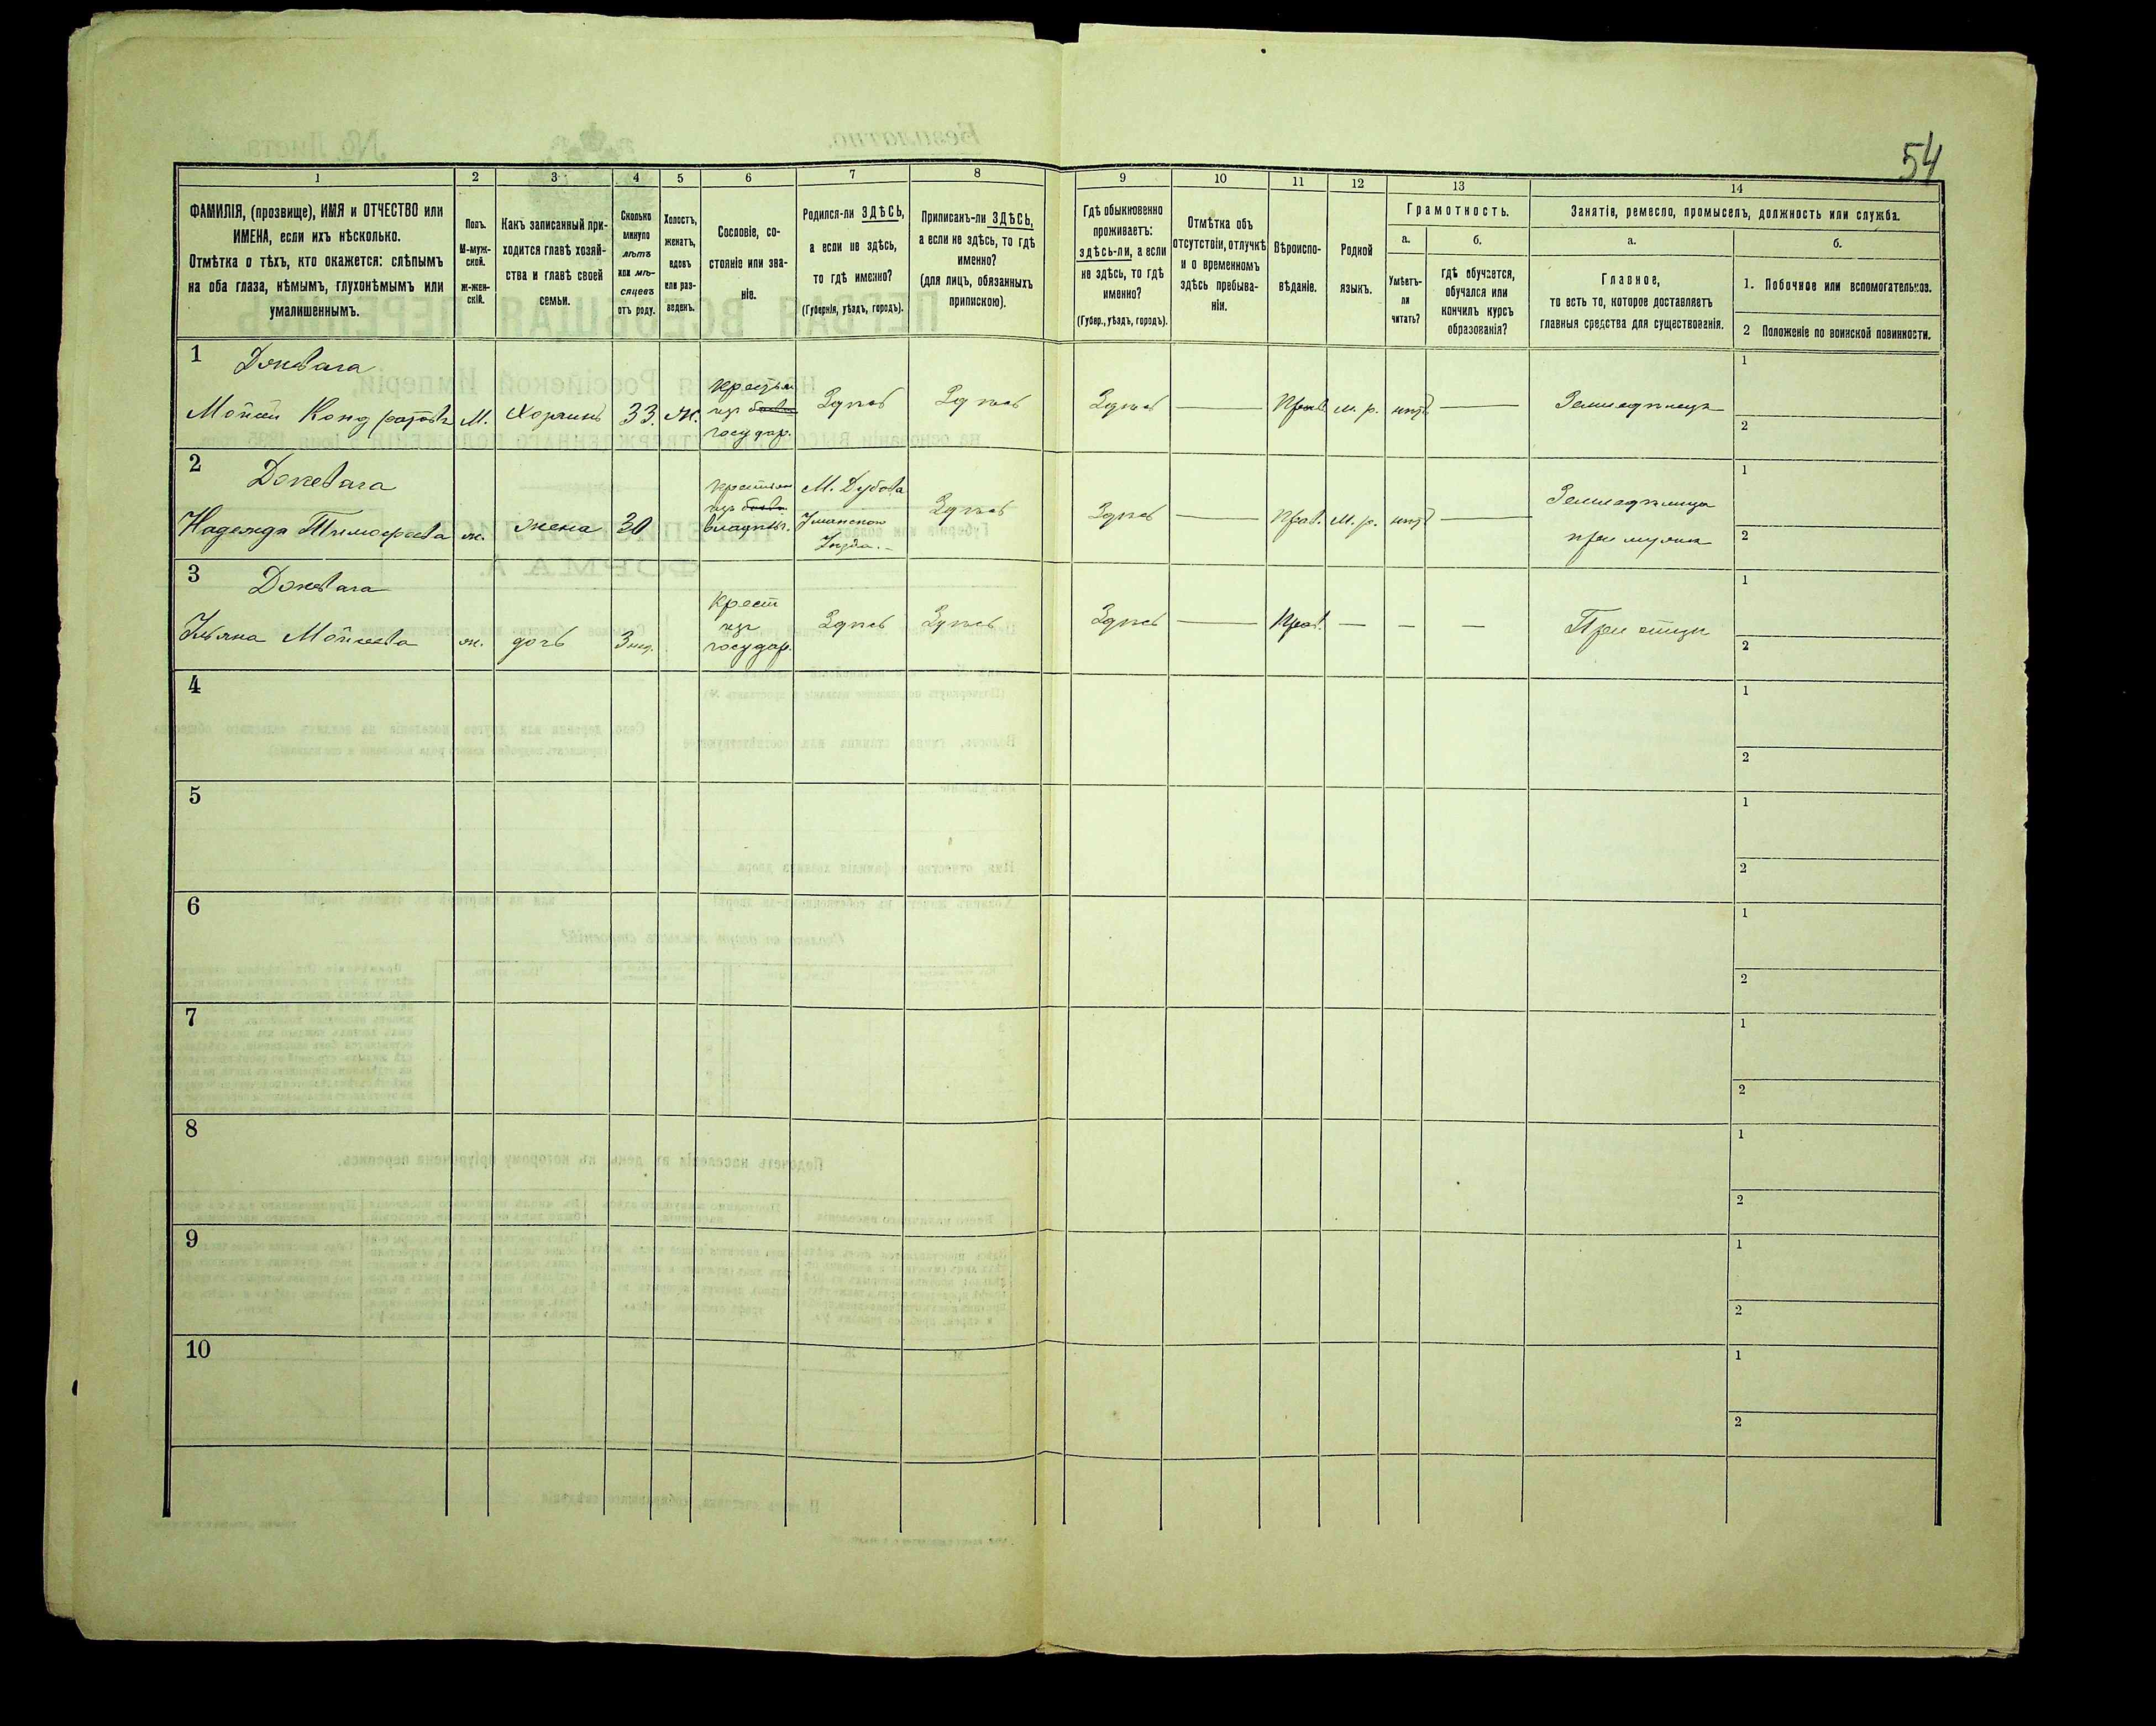 54
1 2 3 4 5 6 7 8 9 10 11 12 13 14
ФАМИЛІЯ, (прозвище), ИМЯ и ОТЧЕСТВО или
ИМЕНА, если ихъ нѣсколько.
Отмѣтка о тѣхъ, кто окажется: слѣпымъ
на оба глаза, нѣмымъ, глухонѣмымъ или
умалишеннымъ.
Полъ.
М-муж-
ской.
ж-жен-
скій.
Какъ записанный при-
ходится главѣ хозяй-
ства и главѣ своей
семьи.
Сколько
минуло
лѣтъ
или мѣ-
сяцевъ
отъ роду.
Холостъ,
женатъ,
вдовъ
или раз-
веденъ.
Сословіе, со-
стояніе или зва-
ніе.
Родился-ли ЗДѢСЬ,
а если не здѣсь,
то гдѣ именно?
(Губернія, уѣздъ, городъ).
Приписанъ-ли ЗДѢСЬ,
а если не здѣсь, то гдѣ
именно?
(для лицъ, обязанныхъ
припискою).
Гдѣ обыкновенно
проживаетъ:
здѣсь-ли, а если
не здѣсь, то гдѣ
именно?
(Губер., уѣздъ, городъ).
Отмѣтка объ
отсутствіи, отлучкѣ
и о временномъ
здѣсь пребыва-
ніи.
Вѣроиспо-
вѣданіе.
Родной
языкъ.
Грамотность.
а.
Умѣетъ-
ли
читать?
б.
гдѣ обучается,
обучался или
кончилъ курсъ
образованія?
Занятіе, ремесло, промыселъ, должность или служба.
а.
Главное,
то есть то, которое доставляетъ
главныя средства для существованія.
б.
1. Побочное или вспомогательное.
2 Положеніе по воинской повинности.
1
Моисей Кондратовъ М. Хозяинъ 33. ж.
Крестьян
изъ
государ.
Здѣсь Здѣсь Здѣсь — Прав. м. р. нѣтъ — Земледѣлецъ
1
2
2
Надежда Тимофеева ж. жена 30
Крестьян
изъ
владѣльч.
М. Дубова
Уманскаго
Уѣзда.
Здѣсь Здѣсь — Прав. м. р. нѣтъ —
Земледѣлица
при мужѣ
1
2
3
Ульяна Моисеева ж. дочь 3 нед.
Крест
изъ
государ.
Здѣсь Здѣсь Здѣсь — Прав. — — —
При отцѣ
1
2
4
1
2
5
1
2
6
1
2
7
1
2
8
1
2
9
1
2
10
1
2